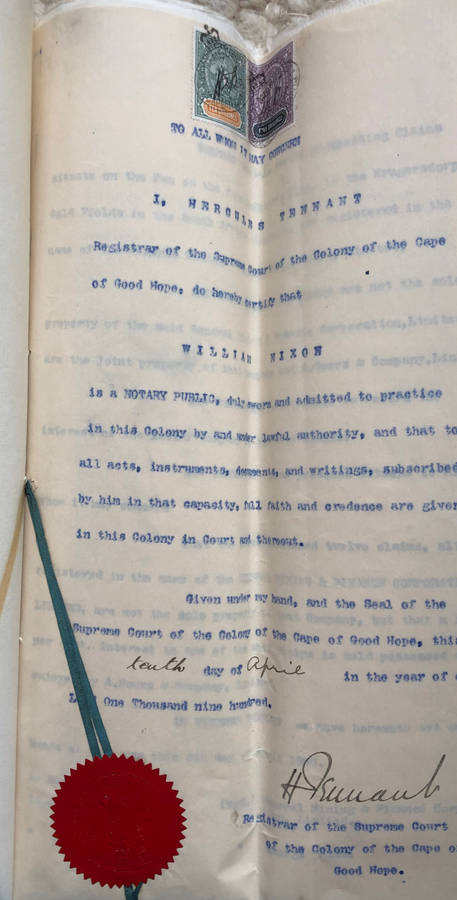 TO ALL WHOM IT MAY CONCERN
I, HERCULES TENNANT
Registrar of the Supreme Court of the Colony of the Cape
of Good Hope, do hereby certify that
WILLIAM NIXON
is a NOTARY PUBLIC, duly sworn and admitted to practice
in this Colony by and under lawful authority, and that to
all acts, instruments, documents, and writings, subscribed
by him in that capacity, full faith and credence are given
in this Colony in Court and thereout.
Given under my hand, and the Seal of the
Supreme Court of the Colony of the Cape of Good Hope, this
tenth day of April in the year of
One Thousand nine hundred.
H Tennant
Registrar of the Supreme Court
of the Colony of the Cape of
Good Hope.